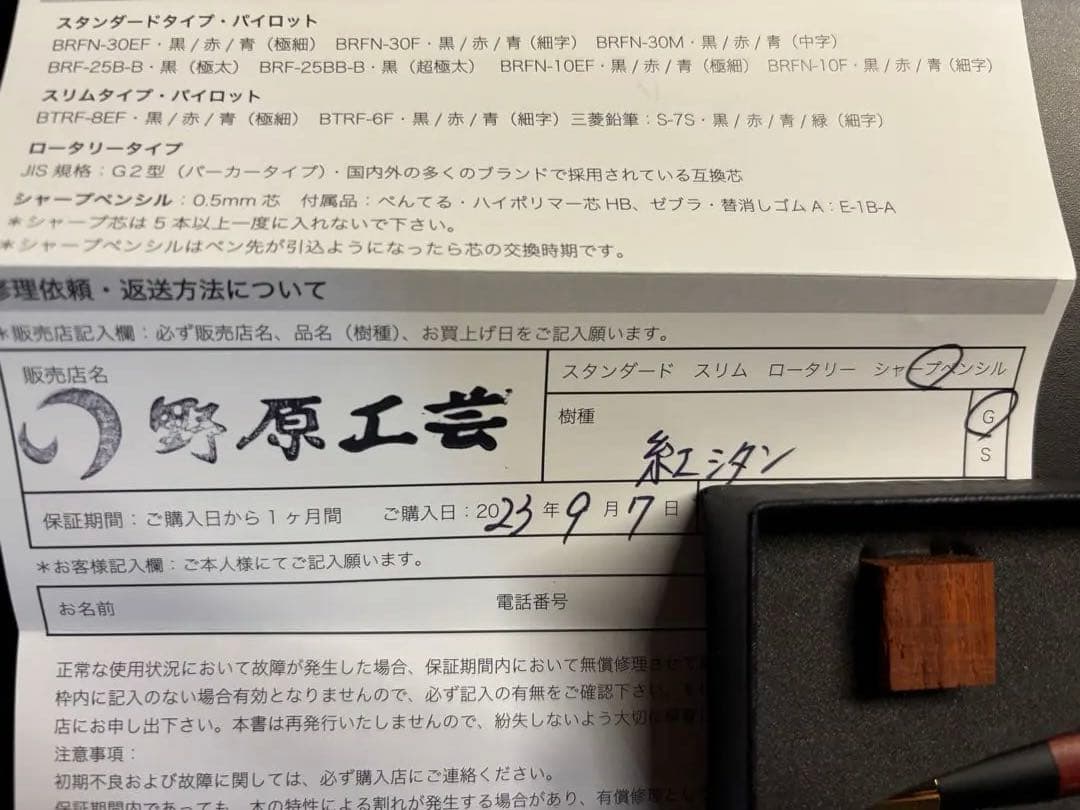 スタンダードタイプ・パイロット
BRFN-30EF・黒/赤/青（極細） BRFN-30F・黒/赤/青（細字） BRFN-30M・黒/赤/青（中字）
BRF-25B-B・黒（極太） BRF-25BB-B・黒（超極太） BRFN-10EF・黒/赤/青（極細） BRFN-10F・黒/赤/青（細字）
スリムタイプ・パイロット
BTRF-8EF・黒/赤/青（極細） BTRF-6F・黒/赤/青（細字）三菱鉛筆：S-7S・黒/赤/青/緑（細字）
ロータリータイプ
JIS規格：G2型（パーカータイプ）・国内外の多くのブランドで採用されている互換芯
シャープペンシル：0.5mm芯 付属品：ぺんてる・ハイポリマー芯HB、ゼブラ・替消しゴムA：E-1B-A
＊シャープ芯は5本以上一度に入れないで下さい。
＊シャープペンシルはペン先が引込ようになったら芯の交換時期です。
修理依頼・返送方法について
＊販売店記入欄：必ず販売店名、品名（樹種）、お買上げ日をご記入願います。
販売店名
野原工芸
スタンダード スリム ロータリー シャープペンシル
樹種
紅シタン
G
S
保証期間：ご購入日から1ヶ月間 ご購入日：2023年9月7日
＊お客様記入欄：ご本人様にてご記入願います。
お名前 電話番号
正常な使用状況において故障が発生した場合、保証期間内において無償修理させて
枠内に記入のない場合有効となりませんので、必ず記入の有無をご確認下さい。
店にお申し出下さい。本書は再発行いたしませんので、紛失しないよう大切に
注意事項：
初期不良および故障に関しては、必ず購入店にご連絡ください。
保証期間内であっても、木の特性による割れが発生する場合があり、有償修理とし